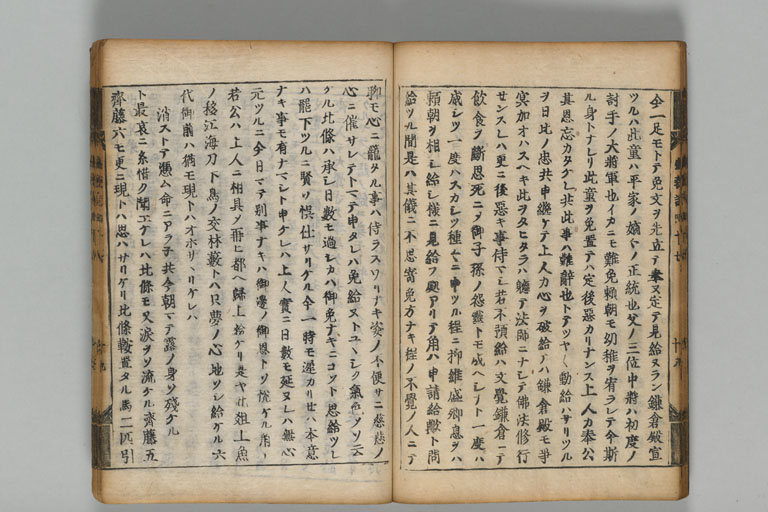 今一足モトテ免文ヲ先立テ奉又定テ見給ヌラン鎌倉殿宣
ツルハ此童ハ平家ノ嫡々ノ正統也父ノ三位中將ハ初度ノ
討手ノ大將軍也イカニモ難免賴朝モ幼稚ヲ宥ラレテ今斯
ル身トナレリ此童ヲ免置テハ定後惡カリナンス上人カ奉公
其恩忘カタケレ共此事ハ難辭也トテツヤ〱動給ハサリツル
ヲ日比ノ忠共申繼ケテ上人カ心ヲ破給テハ鎌倉殿モ爭
冥加オハスヘキ此ヲヒタラハ軈テ法師ニナシテ佛法修行
セサスレハ更ニ後惡キ事侍マシ若不預給ハ文覺鎌倉ニテ
飲食ヲ斷思死ニシテ御子孫ノ怨靈トモ成ヘシナト一度ハ
威シツ一度ハスカシツ種々ニ申ツル程ニ抑維盛卿息ヲハ
賴朝ヲ相シ給シ樣ニ見給フ処アリテ角ハ申請給歟ト問
給ツル間是ハ其儀ニ不思寄免方ナキ程ノ不覺ノ人ニテ
聊モ心ニ籠タル事ハ侍ラスワリナキ姿ノ不便サニ慈悲ノ
心ニ催サレテトマテ申タレハ免給ヌトユヽシク氣色ソソ云
ケル北條ハ承シ日數モ過シカハ御免ナキニコソト思給ツレ
ハ罷下ツルニ賢ソ悞仕サリケル今一時モ遲カリセハ本意
ナキ事モ有ナマシト申ケレハ上人實ニ日數モ延ヌレハ無心
元ツルニ今日マテ別事ナキハ御邊ノ御恩トソ悅ケル角テ
若公ハ上人ニ相具メ再ヒ都ヘ歸上給ケリ是ヤ此俎上魚
ノ移江海刀下鳥ノ交林藪トハ只夢ノ心地ソシ給ケル六
代御前ハ猶モ現トハオホサヽリケレハ
消ステ憑ム命ニアラ子共今朝マテ露ノ身ソ殘ケル
ト最哀ニ系惜ク聞エケレハ北條モ又淚ヲソ流ケル齊藤五
齊藤六モ更ニ現トハ思ハサリケリ北條鞍置タル馬二匹引